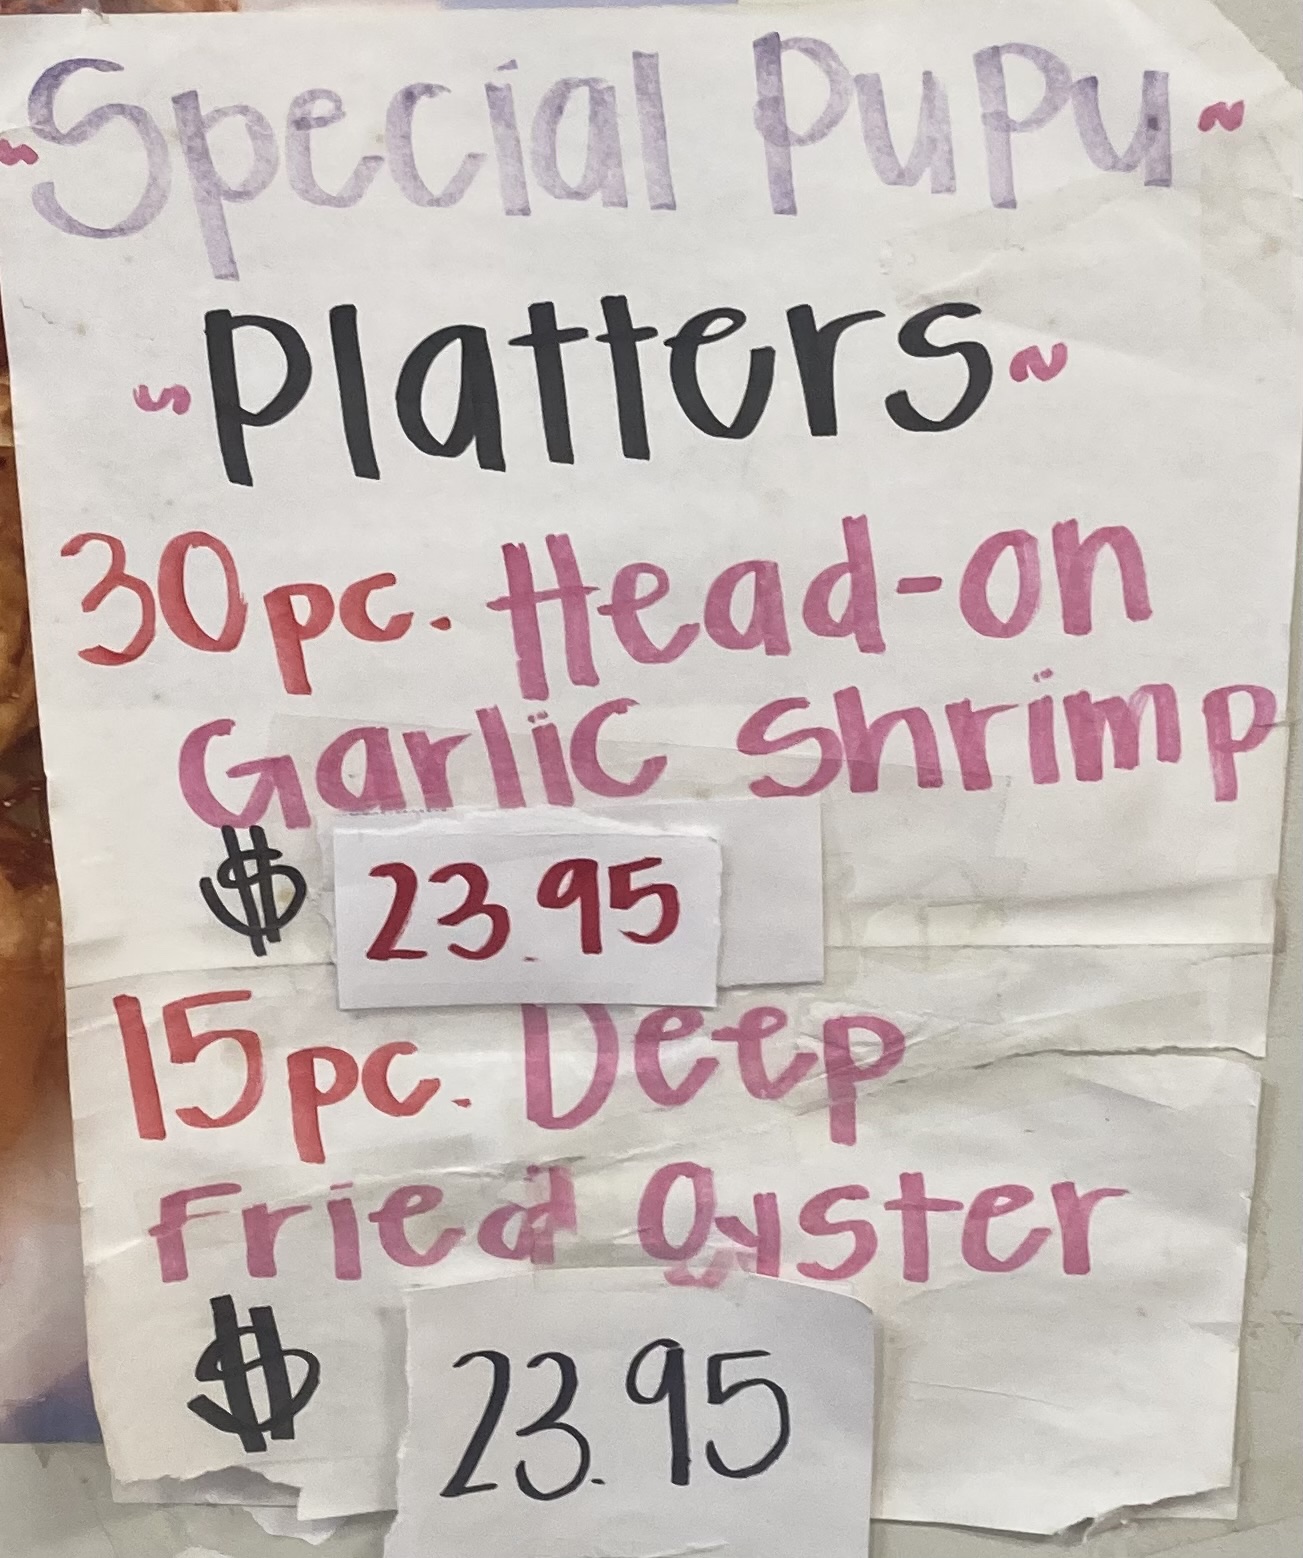 ~Special Pupu~
~Platters~
30pc. Head-on
Garlic Shrimp
$ 23.95
15pc. Deep
Fried Oyster
$ 23.95